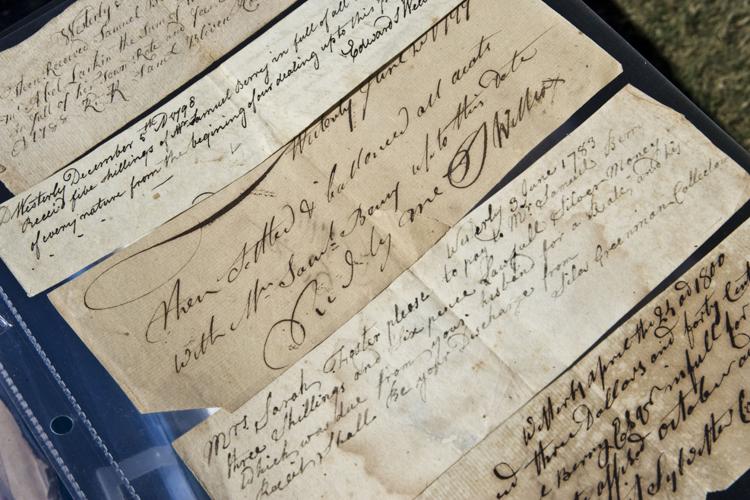 Westerly
Then Received Samuel B
Mr Abel Larkin the Sum of
in full of his Town Rate and
1788 R R Saml Bliven
Westerly December 5th D 1798
Receid five shillings of Mr Samuel Berry in full of all
of every nature from the begining of our dealing up to this
Edward S Wel
Westerly June
then Settled & ballanced all acots
with Mr Saml Berry up to this date
Re d by me S Willcox
Westerly 3 June 1783
Mrs Sarah Foster please to pay to Mr Samuel Berry
three Shillings and six pence Lawfull Silver Money
which was due from your husban for a Rate and his
Receit Shall be your discharge from
Silas Greenman Collector
Westerly april the 23d 1800
three Dollars and forty Cent
Berry Esqr in full for
october
Sylvester